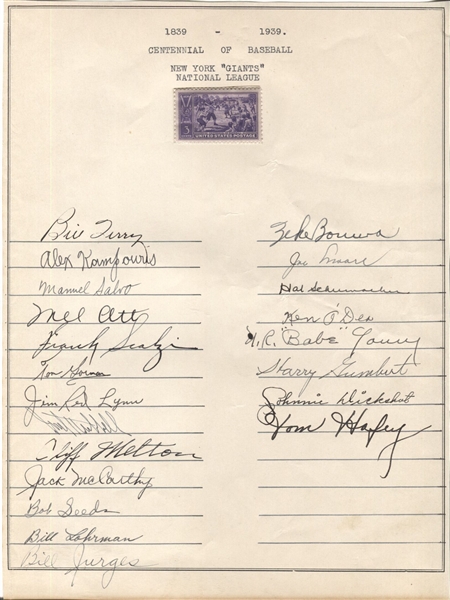 1839 - 1939.
CENTENNIAL OF BASEBALL
NEW YORK "GIANTS"
NATIONAL LEAGUE
3¢
UNITED STATES POSTAGE
Bill Terry
Alex Kampouris
Manuel Salvo
Mel Ott
Frank Scalzi
Tom Gorman
Jim Red Lynn
Cliff Melton
Jack McCarthy
Bob Seeds
Bill Lohrman
Bill Jurges
Zeke Bonura
Joe Moore
Hal Schumacher
Ken O'Dea
H.R. "Babe" Young
Harry Gumbert
Johnnie Dickshot
Tom Hafey